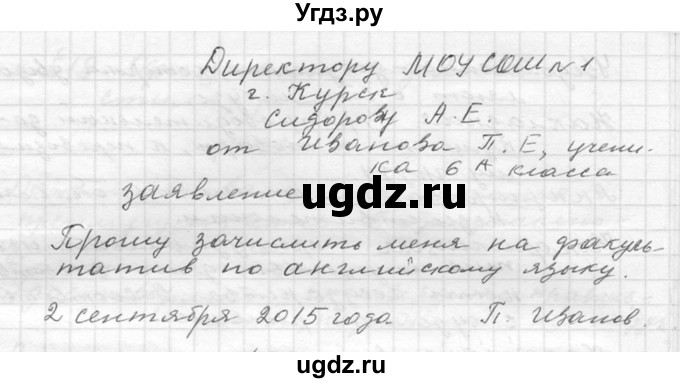 Угдз.ру
Директору МОУСОШ№1
г. Курск
Сидорову А.Е.
от Иванова П.Е, учени-
ка 6 А класса
заявление
ugdz.ru
Прошу зачислить меня на факуль-
татив по английскому языку.
2 сентября 2015 года П. Иванов.
ugdz.ru